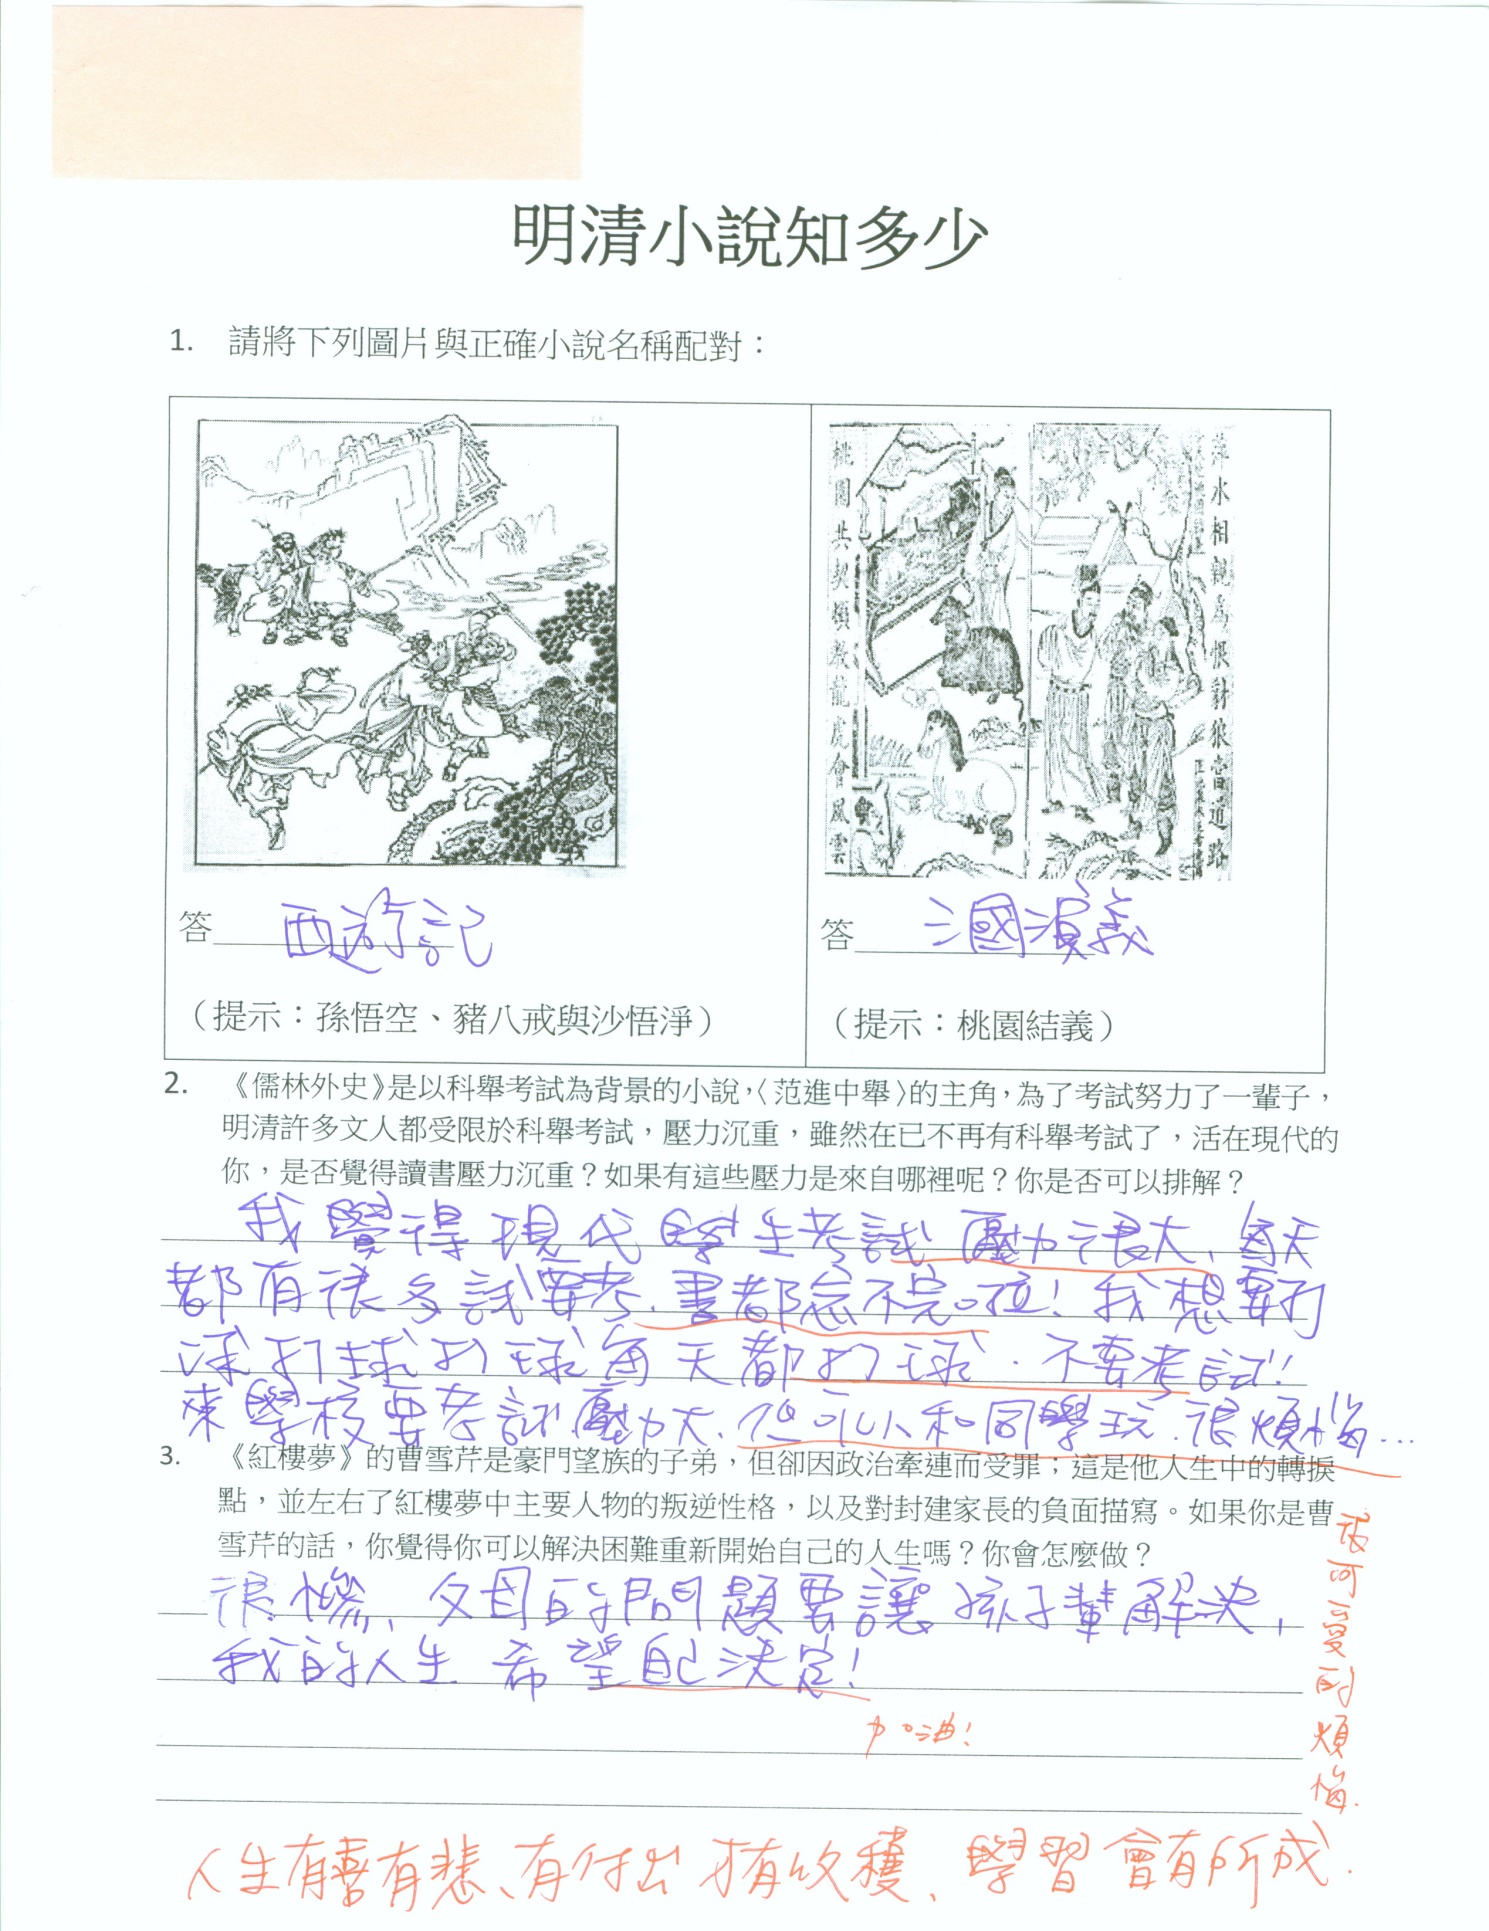 明清小說知多少
1. 請將下列圖片與正確小說名稱配對：
桃園共契頓教龍虎會風雲
萍水相親為恨豺狼當道路
答 西遊記
答 三國演義
（提示：孫悟空、豬八戒與沙悟淨）
（提示：桃園結義）
2. 《儒林外史》是以科舉考試為背景的小說，〈范進中舉〉的主角，為了考試努力了一輩子，
明清許多文人都受限於科舉考試，壓力沉重，雖然在已不再有科舉考試了，活在現代的
你，是否覺得讀書壓力沉重？如果有這些壓力是來自哪裡呢？你是否可以排解？
我覺得現代學生考試壓力很大、每天
都有很多試要考、書都念不完啦！我想要打
球打球打球每天都打球．不要考試！
來學校要考試壓力大、但可以和同學玩．很煩惱…
3. 《紅樓夢》的曹雪芹是豪門望族的子弟，但卻因政治牽連而受罪；這是他人生中的轉捩
點，並左右了紅樓夢中主要人物的叛逆性格，以及對封建家長的負面描寫。如果你是曹
雪芹的話，你覺得你可以解決困難重新開始自己的人生嗎？你會怎麼做？
很慘、父母的問題要讓孩子輩解決，
我的人生希望自己決定！
加油！
很可愛的煩惱．
人生有喜有悲、有付出才有收穫、學習會有所成．